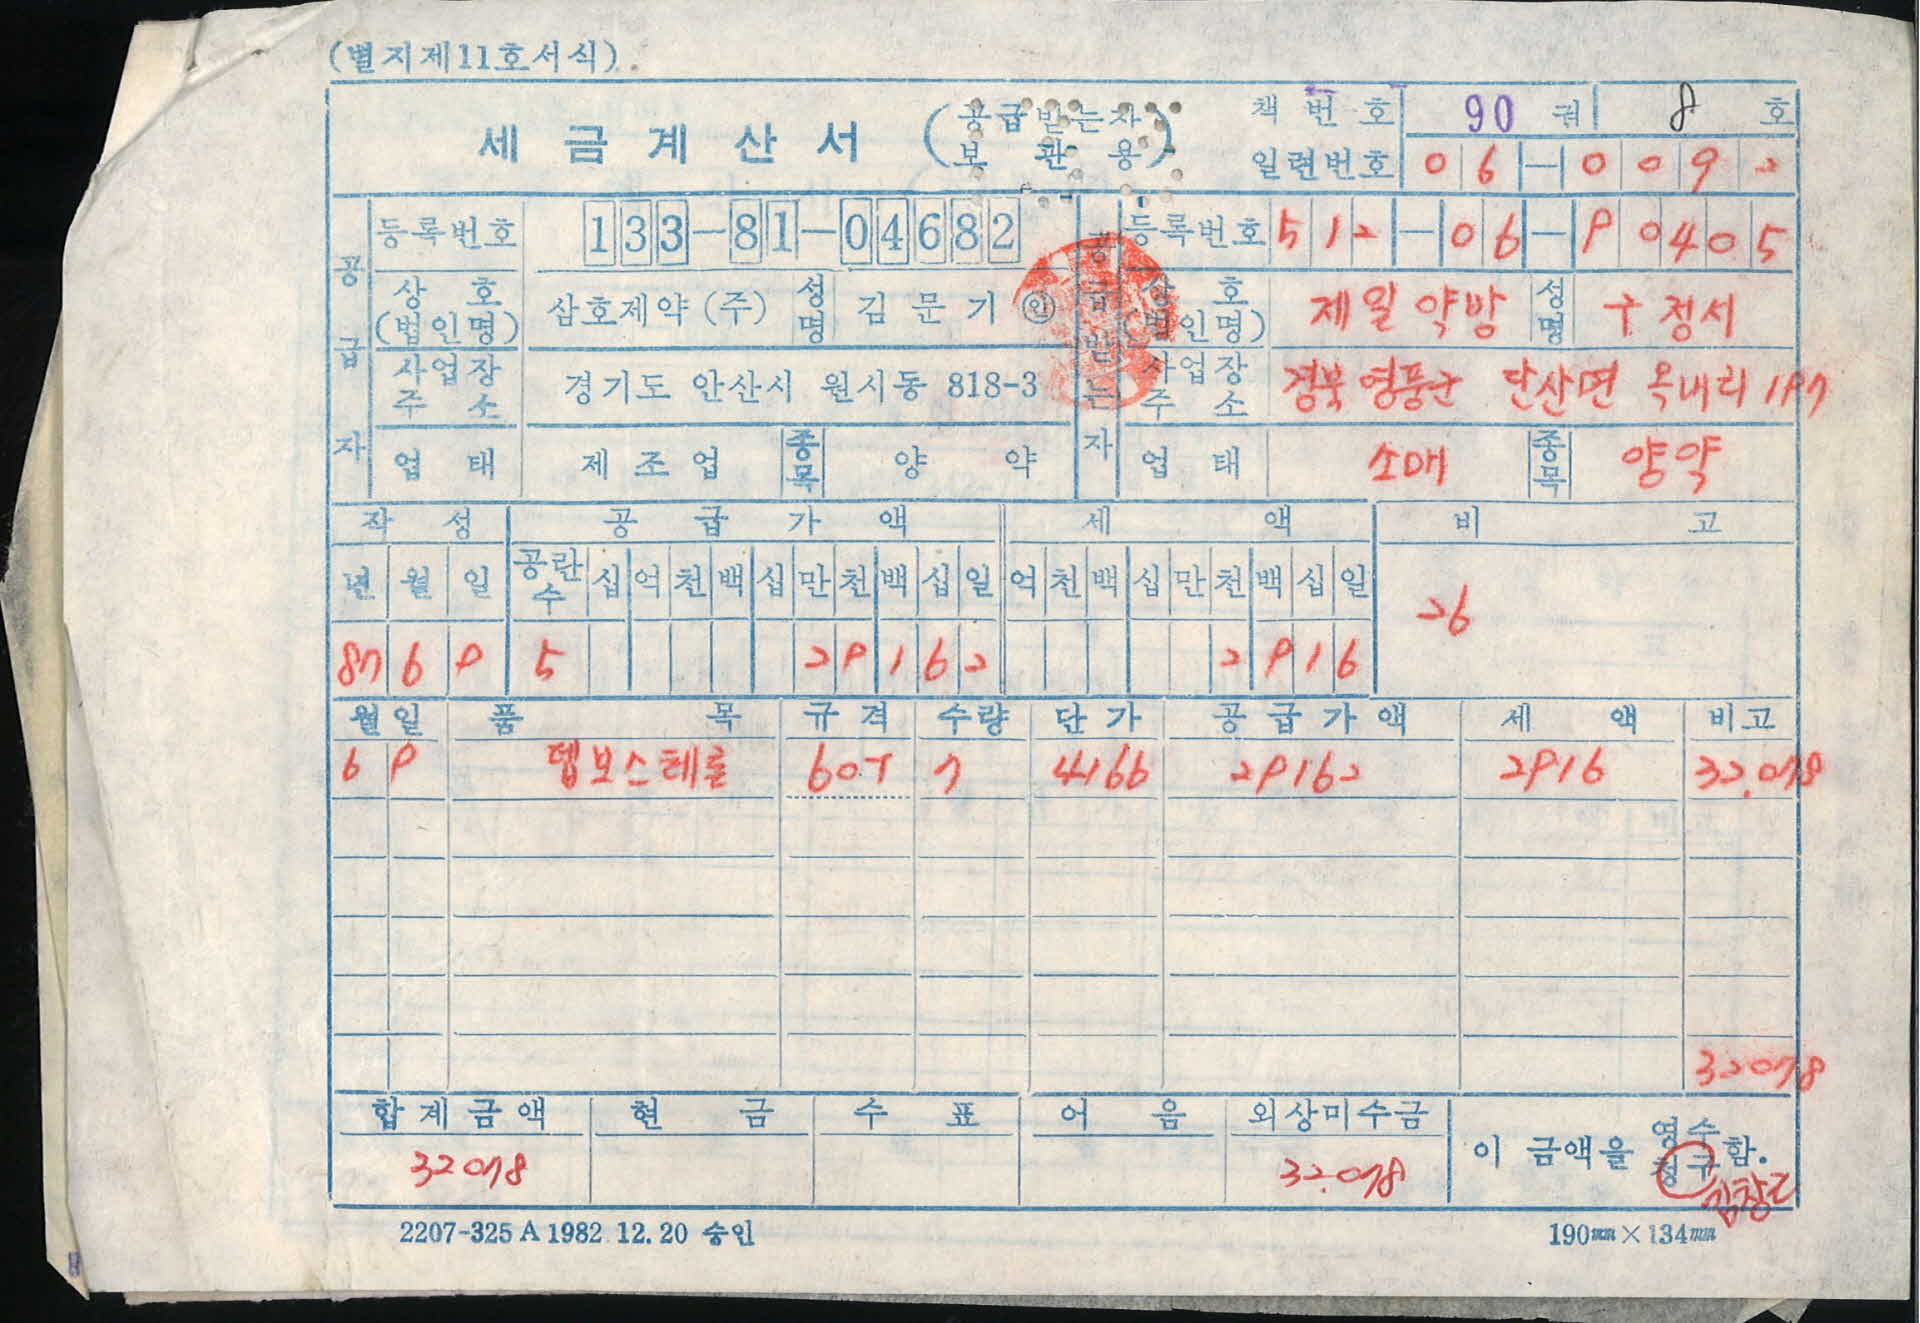 (별지제11호서식)
세금계산서 (공급받는자 보관용) 책번호 90 권 8 호
일련번호 06-0092
공급자 등록번호 133-81-04682 공급받는자 등록번호 512-06-90405
상호(법인명) 삼호제약(주) 성명 김문기 ㊞ 상호(법인명) 제일약방 성명 구정서
사업장주소 경기도 안산시 원시동 818-3 사업장주소 경북 영풍군 단산면 옥내리 197
업태 제조업 종목 양약 업태 소매 종목 양약
작성 공급가액 세액 비고
년 월 일 공란수 십 억 천 백 십 만 천 백 십 일 억 천 백 십 만 천 백 십 일
87 6 9 5 29162 2916 26
월일 품목 규격 수량 단가 공급가액 세액 비고
6 9 뎁보스테론 60T 7 4166 29162 2916 32.078
32078
합계금액 현금 수표 어음 외상미수금 이 금액을 영수 청구 함.
32078 32.078
2207-325A 1982.12.20 승인 190㎜×134㎜